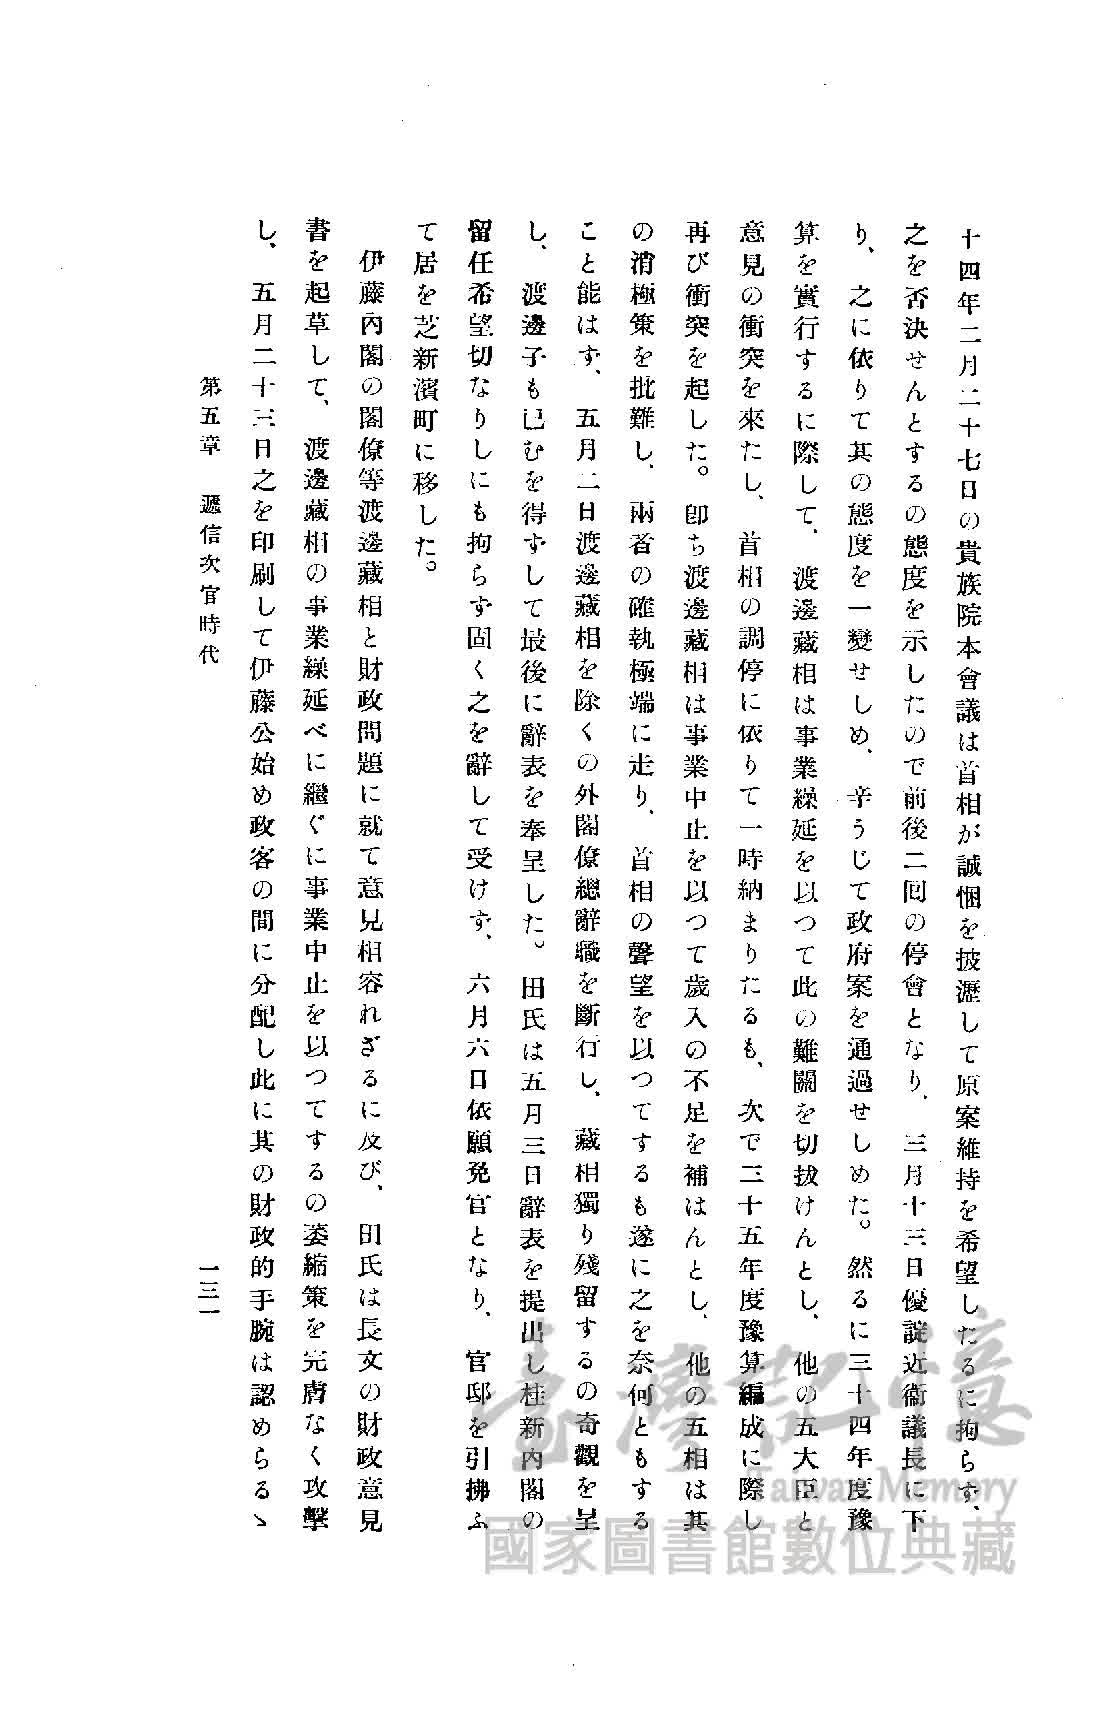 十四年二月二十七日の貴族院本會議は首相が誠悃を披瀝して原案維持を希望したるに拘らず、
之を否決せんとするの態度を示したので前後二囘の停會となり、三月十三日優詔近衞議長に下
り、之に依りて其の態度を一變せしめ、辛うじて政府案を通過せしめた。然るに三十四年度豫
算を實行するに際して、渡邊藏相は事業繰延を以つて此の難關を切拔けんとし、他の五大臣と
意見の衝突を來たし、首相の調停に依りて一時納まりたるも、次で三十五年度豫算編成に際し
再び衝突を起した。卽ち渡邊藏相は事業中止を以つて歲入の不足を補はんとし、他の五相は其
の消極策を批難し、兩者の確執極端に走り、首相の聲望を以つてするも遂に之を奈何ともする
こと能はず、五月二日渡邊藏相を除くの外閣僚總辭職を斷行し、藏相獨り殘留するの奇觀を呈
し、渡邊子も已むを得ずして最後に辭表を奉呈した。田氏は五月三日辭表を提出し桂新內閣の
留任希望切なりしにも拘らず固く之を辭して受けず、六月六日依願免官となり、官邸を引拂ふ
て居を芝新濱町に移した。
伊藤內閣の閣僚等渡邊藏相と財政問題に就て意見相容れざるに及び、田氏は長文の財政意見
書を起草して、渡邊藏相の事業繰延べに繼ぐに事業中止を以つてするの萎縮策を完膚なく攻擊
し、五月二十三日之を印刷して伊藤公始め政客の間に分配し此に其の財政的手腕は認めらるゝ
第五章 遞信次官時代
一三一
臺灣記憶
Taiwan Memory
國家圖書館數位典藏